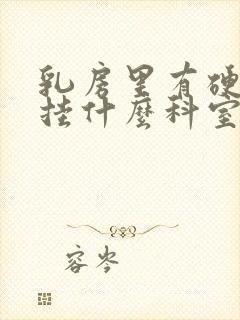 乳房里有硬
挂什麽科室
容岑